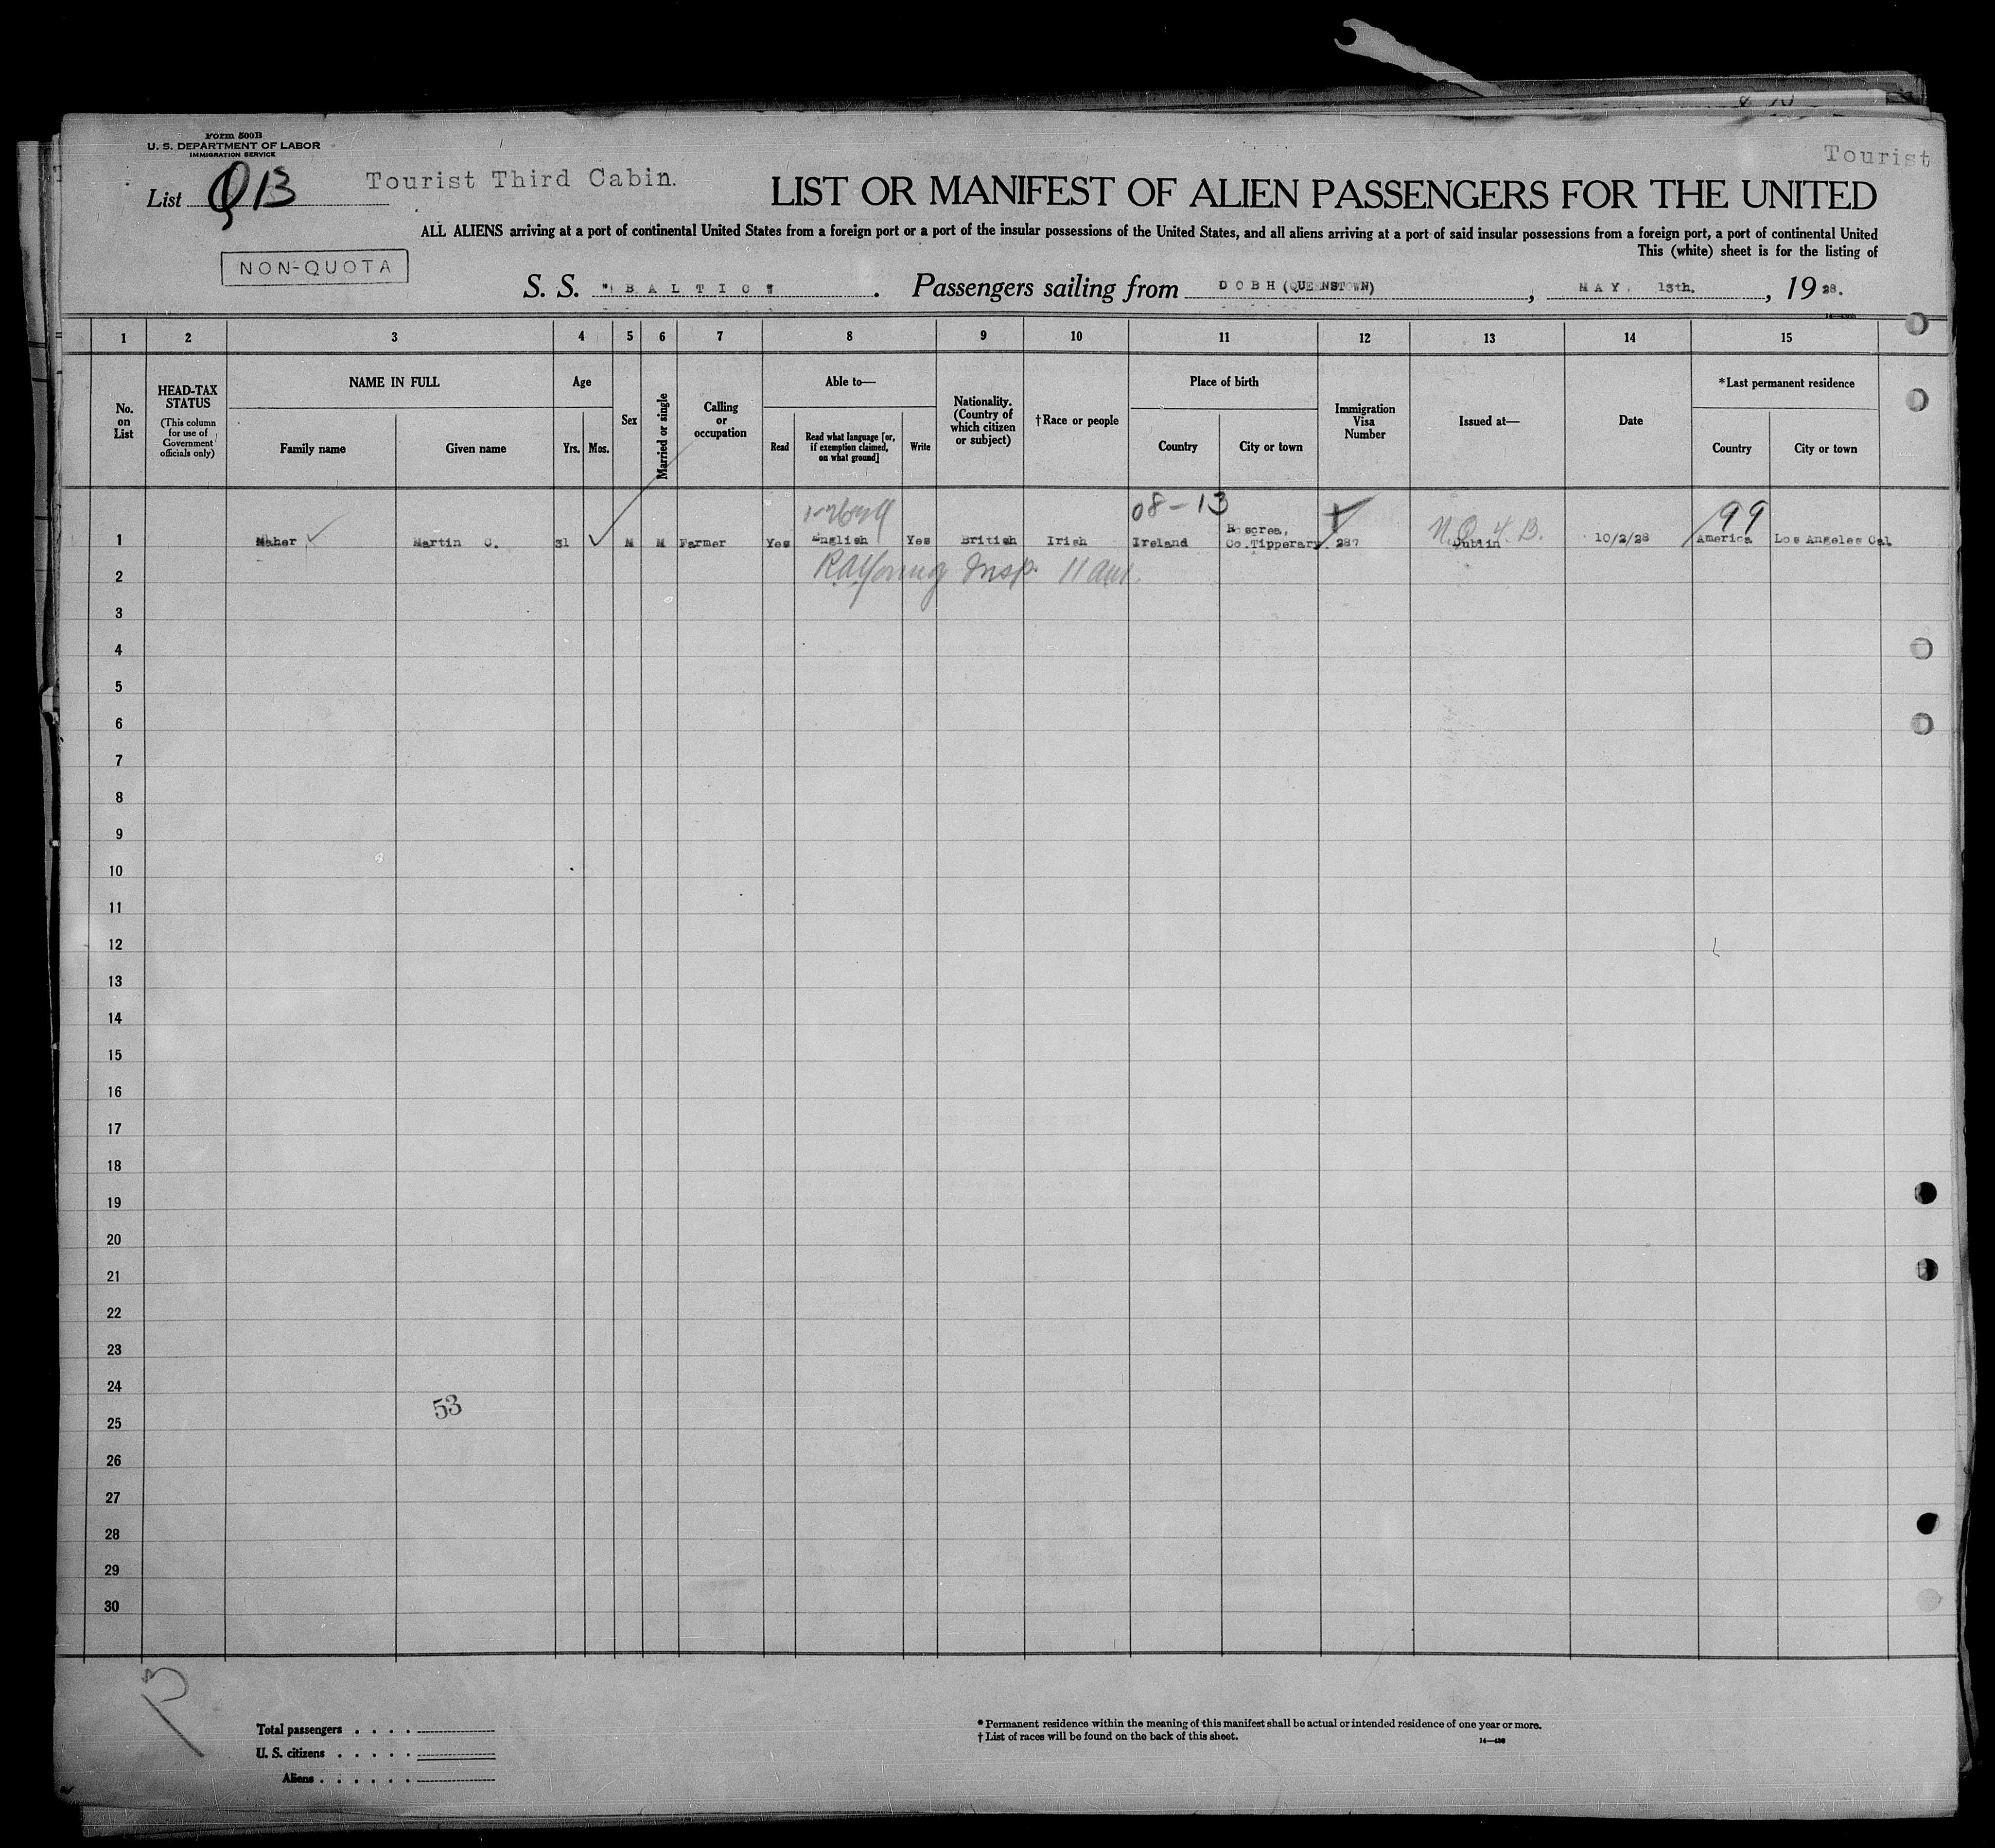 Form 500B
U. S. DEPARTMENT OF LABOR
IMMIGRATION SERVICE
Tourist
List QB
Tourist Third Cabin.
LIST OR MANIFEST OF ALIEN PASSENGERS FOR THE UNITED
ALL ALIENS arriving at a port of continental United States from a foreign port or a port of the insular possessions of the United States, and all aliens arriving at a port of said insular possessions from a foreign port, a port of continental United
This (white) sheet is for the listing of
NON-QUOTA
S. S. "BALTIC". Passengers sailing from DOBH (QUEENSTOWN), MAY. 13th., 1928.
1 2 3 4 5 6 7 8 9 10 11 12 13 14 15
No. on List
HEAD-TAX STATUS
(This column for use of Government officials only)
NAME IN FULL
Family name
Given name
Age
Yrs.
Mos.
Sex
Married or single
Calling or occupation
Able to—
Read
Read what language [or, if exemption claimed, on what ground]
Write
Nationality. (Country of which citizen or subject)
†Race or people
Place of birth
Country
City or town
Immigration Visa Number
Issued at—
Date
*Last permanent residence
Country
City or town
08-13
99
1 Maher Martin C. 31 M M Farmer Yes English Yes British Irish Ireland Roscrea, Co.Tipperary 287 Dublin 10/2/28 America Los Angeles Cal
N.Q. 4. B.
2
Insp. 11 am.
3
4
5
6
7
8
9
10
11
12
13
14
15
16
17
18
19
20
21
22
23
24
53
25
26
27
28
29
30
Total passengers . . . .
U. S. citizens . . . . .
Aliens . . . . . .
* Permanent residence within the meaning of this manifest shall be actual or intended residence of one year or more.
† List of races will be found on the back of this sheet.